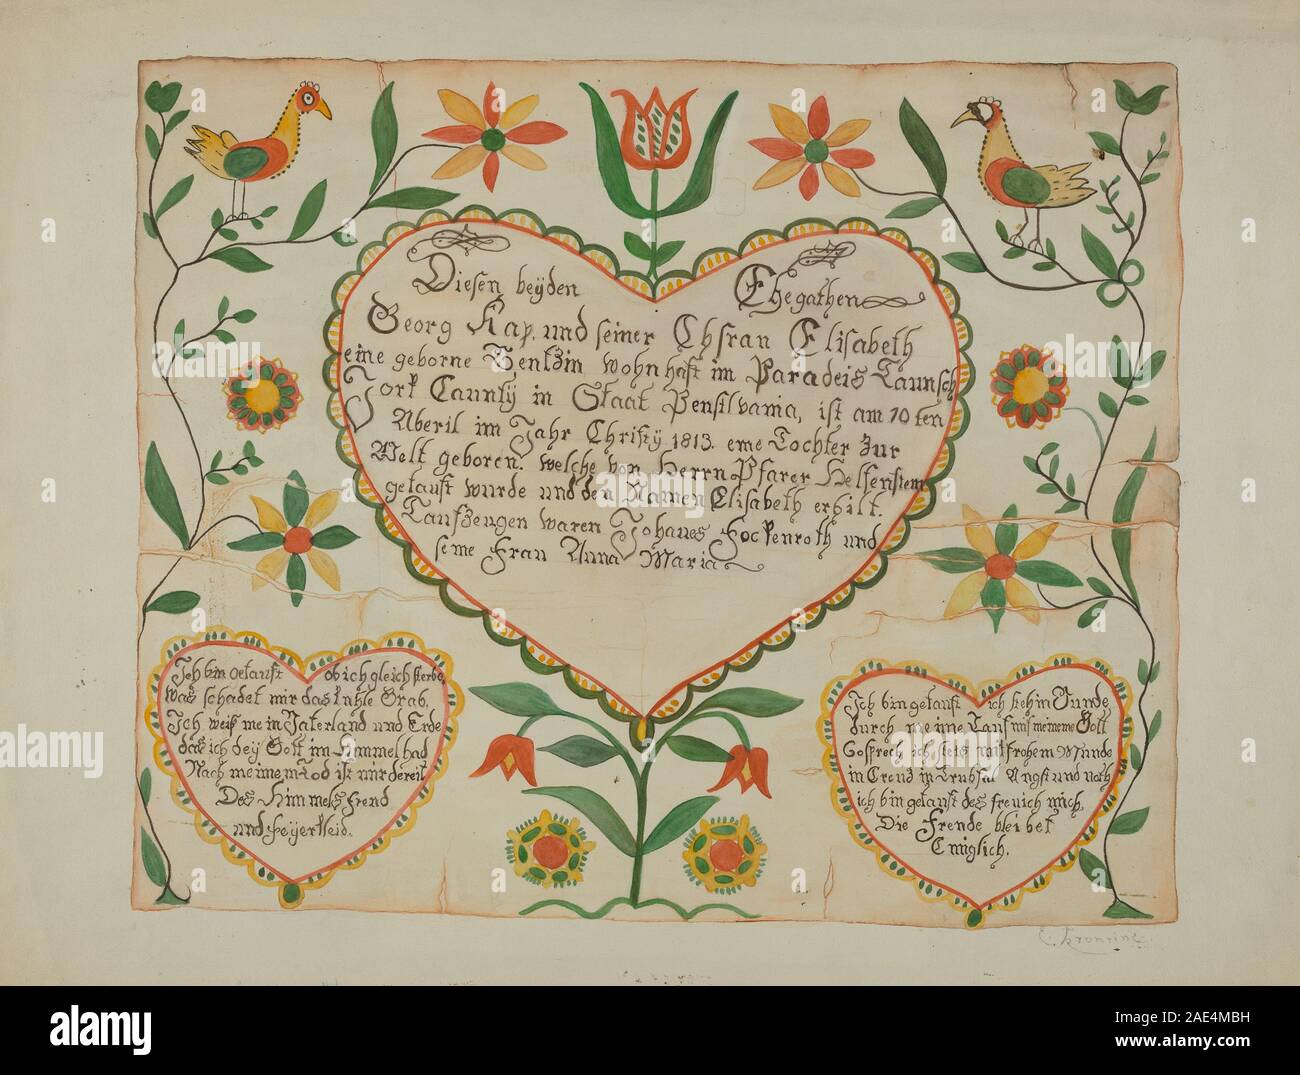 Diesen beÿden Ehegathen
Georg Kap. und seiner Ehfrau Elisabeth
eine geborne Bentzin wohnhaft im Paradeis Taunsch
Jork Caunty in Staat Pensilvania, ist am 10ten
Aberil im Jahr Christÿ 1813. eine Tochter zur
Welt geboren. welche von Herrn Pfarer Helfenstein
getauft wurde und den Namen Elisabeth erhilt.
Taufzeugen waren Johanes Fockenroth und
seine Frau Anna Maria
Ich bin getauft ob ich gleich sterbe
was schadet mir das kuhle Grab.
Ich weiß mein Vaterland und Erde
das ich beÿ Gott im Himmel hab
Nach meinem Tod ist mir bereit
Des Himmels Freud
und Feyerkleid.
Ich bin getauft ich steh in Bunde
durch meine Tauf mit meinem Gott
So sprech ich stets mit frohem Munde
in Creuz in Trubsal Angst und noth
ich bin getauft des freu ich mich,
Die Freude bleibet
Ewiglich.
alamy
Image ID: 2AE4MBH
www.alamy.com